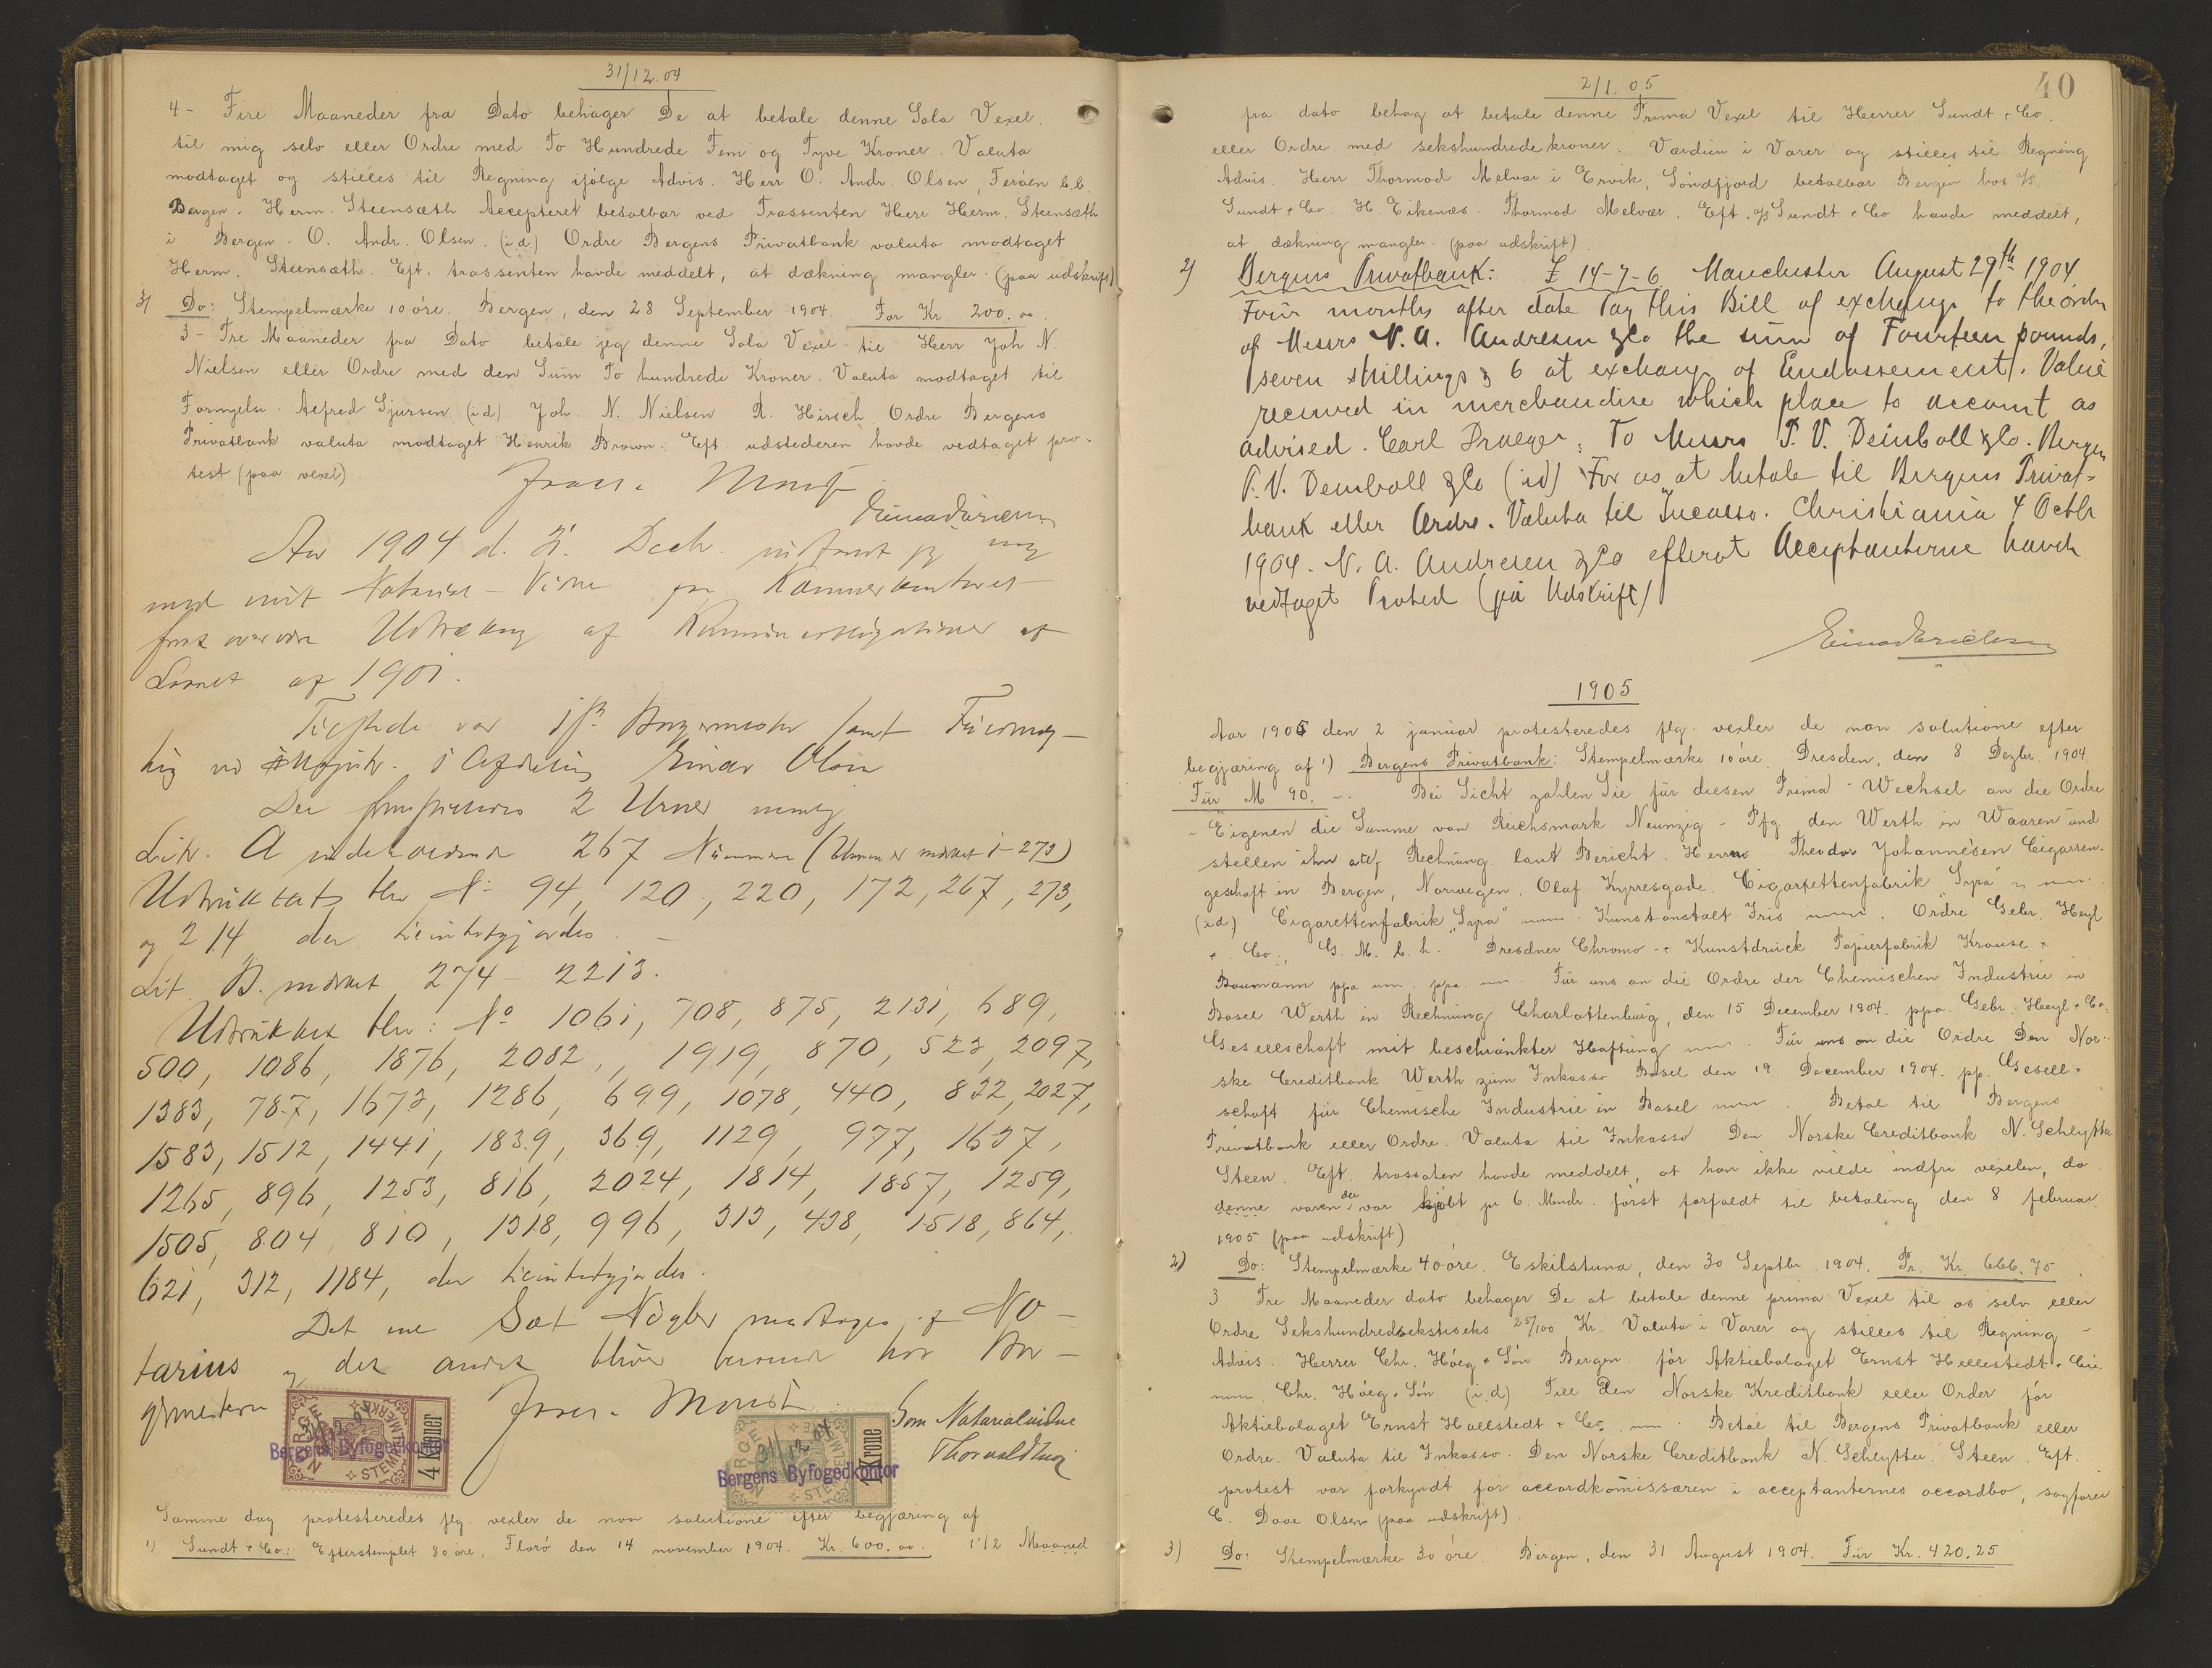 31/12.04
4 - Fire Maaneder fra Dato behager De at betale denne Sola Vexel.
til mig selv eller Ordre med To Hundrede Fem og Tyve Kroner. Valuta
modtaget og stilles til Regning ifølge Advis. Herr O. Andr. Olsen, Ferøen b.b.
Bergen. Herm. Steensæth Accepteret betalbar ved Trassenten Herr Herm. Steensæth
i Bergen. O. Andr. Olsen. (i.d.) Ordre Bergens Privatbank valuta modtaget
Herm. Steensæth. Eft. trassenten havde meddelt, at dækning mangler. (paa udskrift)
3) Do: Stempelmærke 10 øre. Bergen, den 28 September 1904. For Kr. 200.00
3 - Tre Maaneder fra Dato betale jeg denne Sola Vexel til Herr Joh N.
Nielsen eller Ordre med den Sum To hundrede Kroner. Valuta modtaget til
Fornyelse. Alfred Sjursen (id) Joh. N. Nielsen R. Hirsch Ordre Bergens
Privatbank valuta modtaget Henrik Brown. Eft. udstederen havde vedtaget pro-
test (paa vexel).
Aar 1904 d. 31. Decb. indfandt jeg mig
med mit Notarial-Vidne paa Kæmnerkontoret
for at overvære Udtrækning af Kommuneobligationer af
Laanet af 1901.
Tilstede var Borgermester samt
ved i Afdeling Einar Olsen
Der 2 Urner nemlig
Litr. A indeholdende 267 Numere (Urnen er mærket 1-273)
Udtrukket blev No 94, 120, 220, 172, 267, 273,
og 214 der tilintetgjordes.
Lit. B. mærket 274 - 2213.
Udtrukket blev: No 1061, 708, 875, 2131, 689,
500, 1086, 1876, 2082, 1919, 870, 523, 2097,
1383, 787, 1673, 1286, 699, 1078, 440, 822, 2027,
1583, 1512, 1441, 1839, 369, 1129, 977, 1637,
1265, 896, 1253, 816, 2024, 1814, 1857, 1259,
1505, 804, 810, 1318, 996, 313, 438, 1518, 864,
621, 312, 1184, der tilintetgjordes.
Det ene Sæt Nøgler modtoges af No-
tarius og det andet blive beroende hos Bor-
germesteren
Som Notarialvidne
NORGE STEMPELMÆRKE 4 Kroner
31/12 04
Bergens Byfogedkontor
NORGE STEMPELMÆRKE 1 Krone
31/12 04
Bergens Byfogedkontor
Samme dag protesteredes flg. vexler de non solutione efter begjæring af
1) Sundt & Co.: Efterstemplet 80 øre. Florø den 14 november 1904. Kr. 600.00. 1 1/2 Maaned
40
2/1.05
fra dato behag at betale denne Prima Vexel til Herrer Sundt & Co.
eller Ordre med sekshundrede kroner. Værdien i Varer og stilles til Regning
Advis. Herr Thormod Melvær i Ervik, Søndfjord betalbar Bergen hos
Sundt & Co. H. Eikenæs. Thormod Melvær. Eft. Sundt & Co havde meddelt,
at dækning mangler. (paa udskrift).
2) Bergens Privatbank: £ 14-7-6 Manchester August 29th 1904
Four months after date Pay this Bill of exchange to the order
of Messrs N. A. Andresen & Co the sum of Fourteen pounds,
seven shillings & 6 at exchange of Endossement. Value
received in merchandise which place to account as
advised. Carl Draeger. To Messrs P. V. Deinboll & Co. Bergen
P. V. Deinboll & Co (id) For os at betale til Bergens Privat-
bank eller Ordre. Valuta til Incasso. Christiania 4 Octbr
1904. N. A. Andresen & Co efterat Acceptanterne havde
vedtaget Protest (på Udskrift)
1905
Aar 1905 den 2 januar protesteredes flg. vexler de non solutione efter
begjæring af 1) Bergens Privatbank: Stempelmærke 10 øre. Dresden, den 8 Dezbr. 1904.
Für M. 90. - Bei Sicht zahlen Sie für diesen Prima-Wechsel an die Ordre
- Eigenen die Summe von Reichsmark Neunzig - Pfg den Werth in Waaren und
stellen ihn auf Rechnung laut Bericht. Herrn Theodor Johannesen Cigarren-
geschäft in Bergen, Norwegen. Olaf Kyrresgade. Cigarettenfabrik
(i.d.) Cigarettenfabrik Kunstanstalt Iris. Ordre Gebr. Heyl
& Co., G. M. b. h. Dresdner Chromo- & Kunstdruck Papierfabrik Krause &
Baumann ppa ppa. Für uns an die Ordre der Chemischen Industrie in
Basel Werth in Rechnung Charlottenburg, den 15 December 1904. ppa. Gebr. Heyl & Co.
Gesellschaft mit beschränkter Haftung. Für uns an die Ordre Den Nor-
ske Creditbank Werth zum Inkasso Basel den 19 December 1904. pp. Gesell-
schaft für Chemische Industrie in Basel. Betal til Bergens
Privatbank eller Ordre. Valuta til Inkasso Den Norske Creditbank N. Schlytter
Steen. Eft. trassaten havde meddelt, at han ikke vilde indfri vexelen, da
denne varen der var kjøbt pr 6. Mndr. først forfaldt til betaling den 8 februar
1905 (paa udskrift)
2) Do: Stempelmærke 40 øre. Eskilstuna, den 30 Septbr. 1904. Pr. Kr. 666.75
3 Tre Maaneder dato behager De at betale denne prima Vexel til os selv eller
Ordre Sekshundredsekstiseks 25/100 Kr. Valuta i Varer og stilles til Regning
Advis. Herrer Chr. Høeg & Søn Bergen. för Aktiebolaget Ernst Hellestedt & Cie.
Chr. Høeg & Søn (i.d.) Till Den Norske Kreditbank eller Order för
Aktiebolaget Ernst Hallstedt & Co. Betal til Bergens Privatbank eller
Ordre. Valuta til Inkasso. Den Norske Creditbank N. Schlytter. Steen. Eft.
protest var forkyndt for accordkomissæren i acceptanternes accordbo, sagfører
C. Daae Olsen (paa udskrift).
3) Do: Stempelmærke 30 øre. Bergen, den 31 August 1904. Für Kr. 420.25